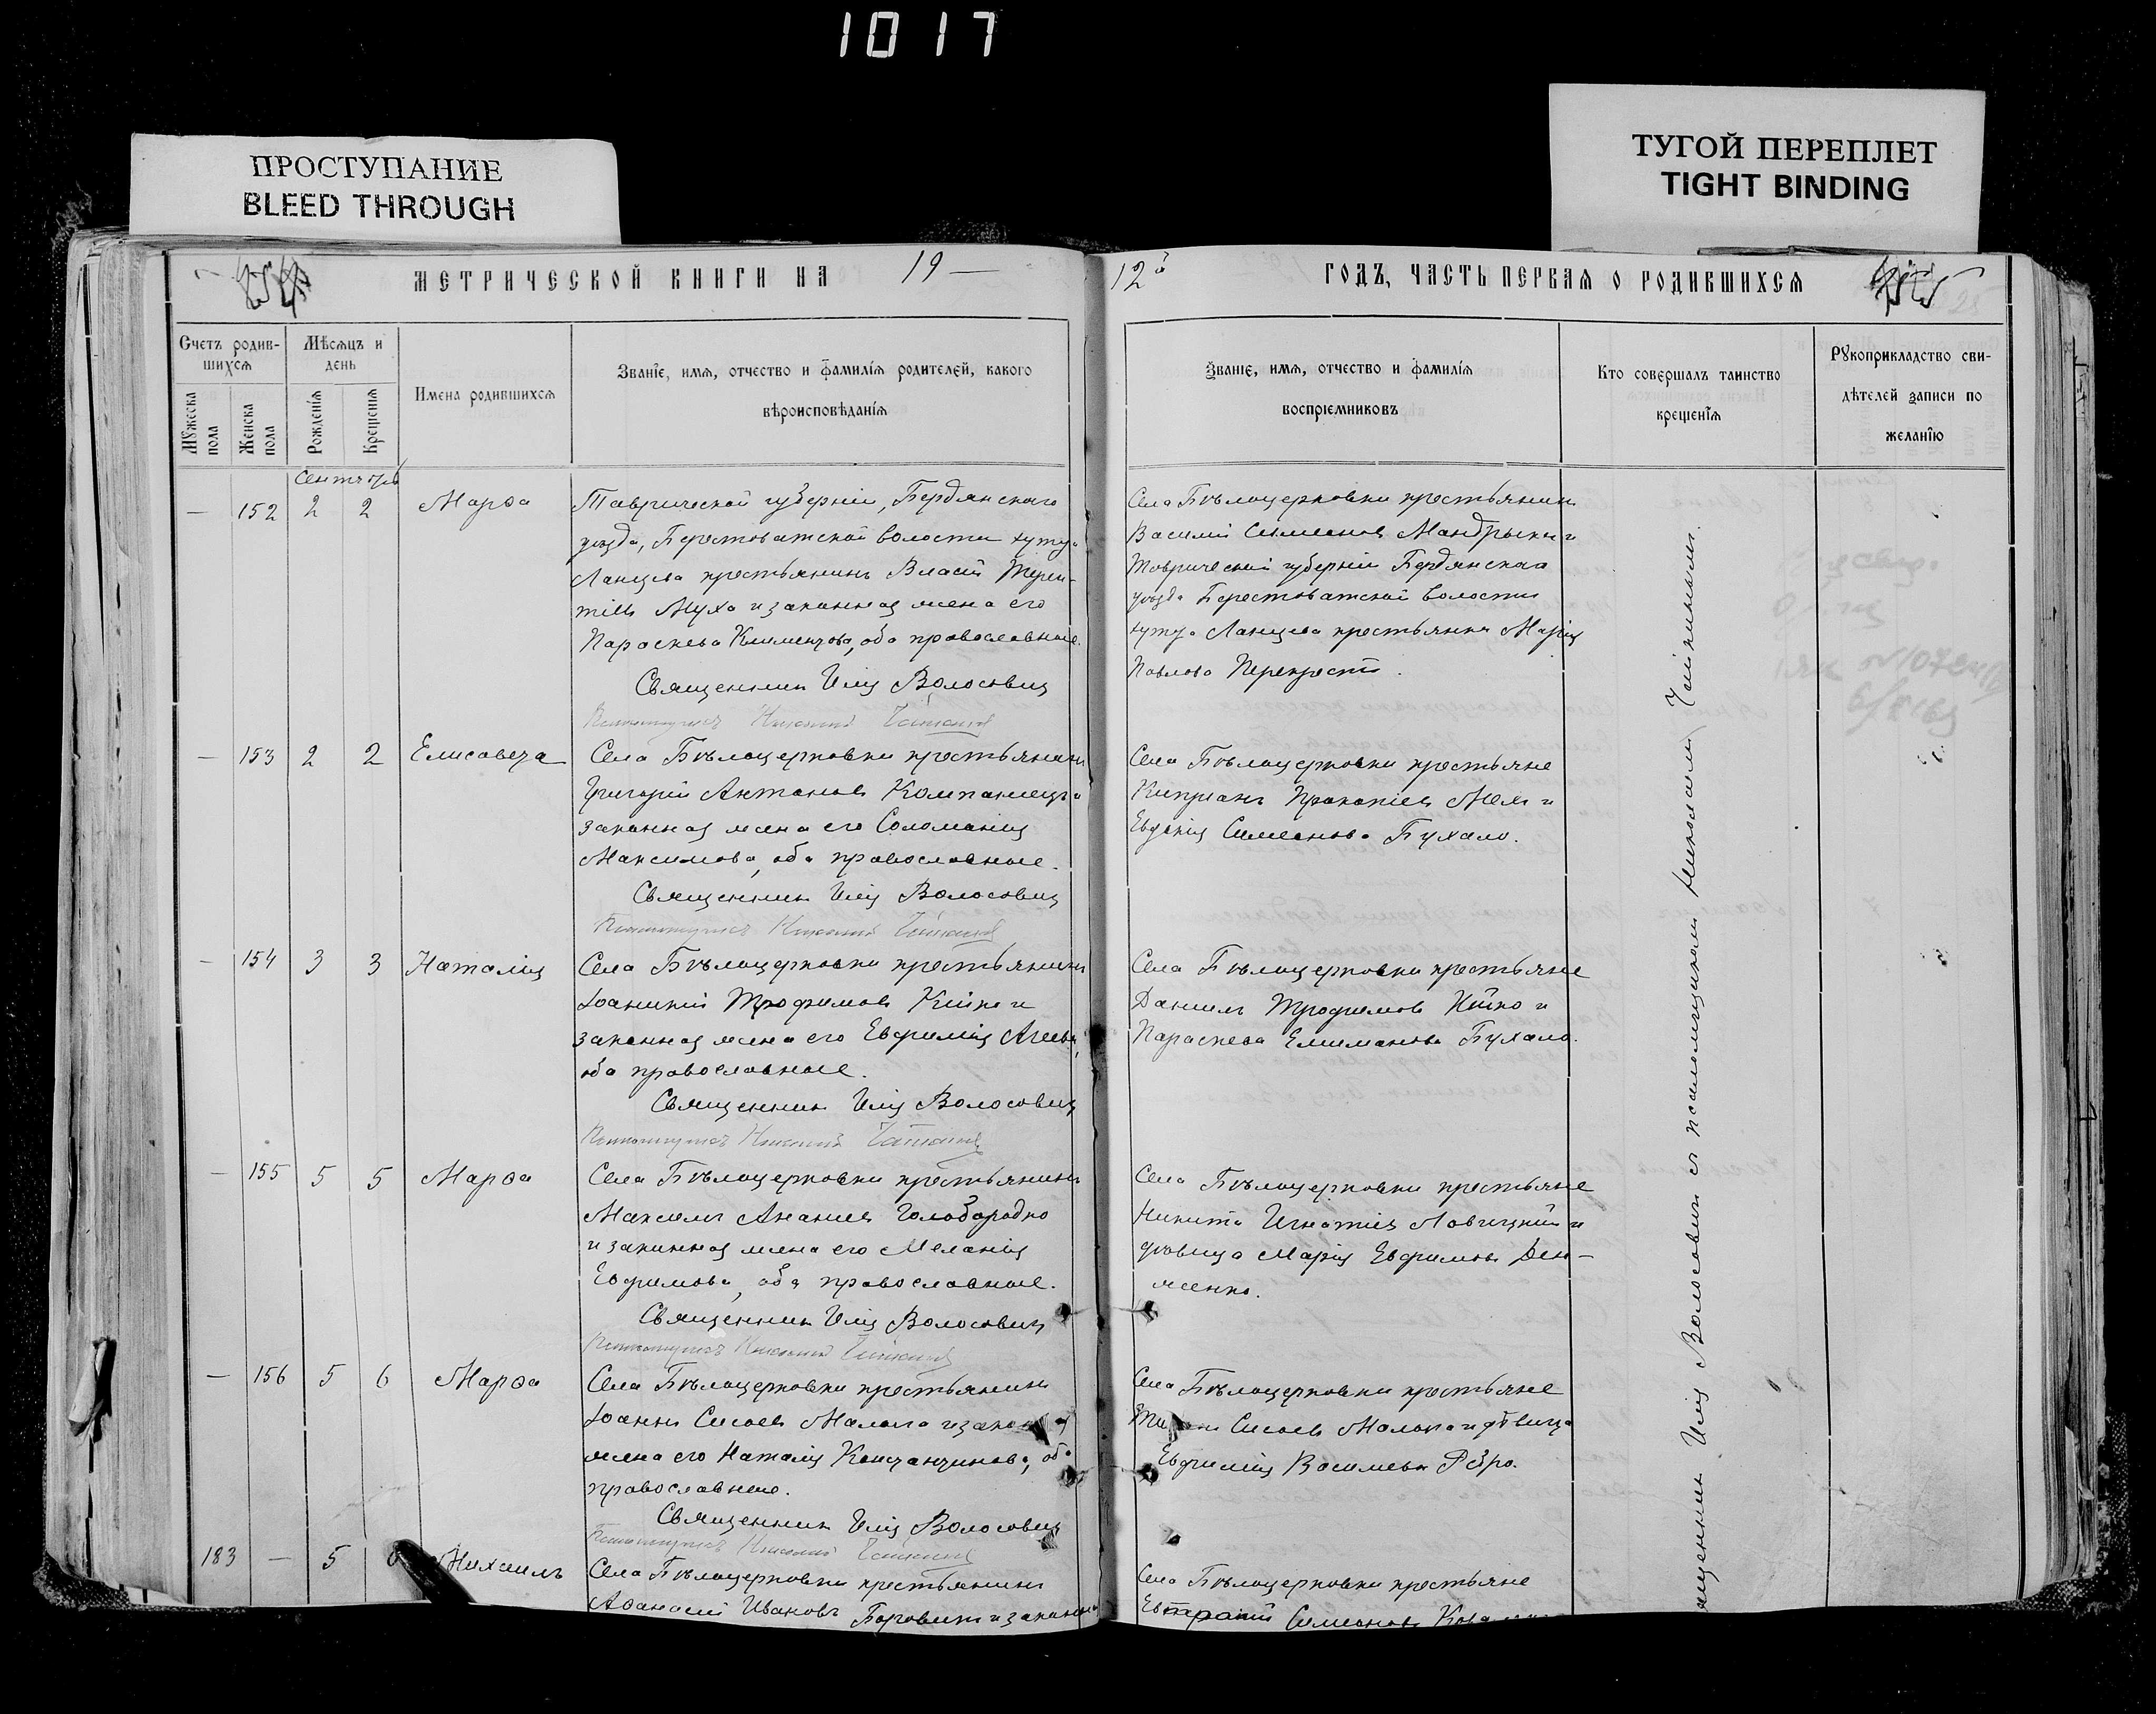 1017
ПРОСТУПАНИЕ
BLEED THROUGH
ТУГОЙ ПЕРЕПЛЕТ
TIGHT BINDING
МЕТРИЧЕСКОЙ КНИГИ НА 19
12й ГОДЪ, ЧАСТЬ ПЕРВАЯ О РОДИВШИХСЯ
Счетъ родив-
шихся
Мужеска пола
Женска пола
Мѣсяцъ и
день
Рожденія
Крещенія
Имена родившихся
Званіе, имя, отчество и фамилія родителей, какого
вѣроисповѣданія
Званіе, имя, отчество и фамилія
воспріемниковъ
Кто совершалъ таинство
крещенія
Рукоприкладство сви-
дѣтелей записи по
желанію
Сентябрь
— 152 2 2 Марѳа
Таврической губерніи, Бердянскаго
уѣзда, Берестоватской волости хут.
крестьянинъ Власій Терен-
тіевъ Муха и законная жена его
Параскева Климентова, оба православные.
Священникъ Илія Волосовичъ
Псаломщикъ Николай
Села Бѣлоцерковки крестьянинъ
Василій Симеоновъ Мандрыка и
Таврической губерніи Бердянскаго
уѣзда Берестоватской волости
крестьянка Марія
Павлова Перекрестъ.
— 153 2 2 Елисавета
Села Бѣлоцерковки крестьянинъ
Григорій Антоновъ Компанецъ и
законная жена его Соломанія
Максимова, оба православные.
Священникъ Илія Волосовичъ
Псаломщикъ Николай
Села Бѣлоцерковки крестьяне
Кипріанъ Прокопіевъ и
Евдокія Симеонова Бухало.
— 154 3 3 Наталія
Села Бѣлоцерковки крестьянинъ
Іоанникій Трофимовъ Кійко и
законная жена его Евфимія Агеева,
оба православные.
Священникъ Илія Волосовичъ
Псаломщикъ Николай
Села Бѣлоцерковки крестьяне
Даніилъ Трофимовъ Кійко и
Параскева Бухало.
— 155 5 5 Марѳа
Села Бѣлоцерковки крестьянинъ
Максимъ Ананіевъ Голобородко
и законная жена его Меланія
Евфимова, оба православные.
Священникъ Илія Волосовичъ
Псаломщикъ Николай
Села Бѣлоцерковки крестьяне
Никита Игнатіевъ Лавицкій и
дѣвица Марія Евфимова
— 156 5 6 Марѳа
Села Бѣлоцерковки крестьянинъ
Іоаннъ Сисоевъ Малога и законная
жена его Наталія Константинова, оба
православные.
Священникъ Илія Волосовичъ
Псаломщикъ Николай
Села Бѣлоцерковки крестьяне
Сисоевъ Малога и дѣвица
Евфимія Васильева
183 — 5 Михаилъ
Села Бѣлоцерковки крестьянинъ
Аѳанасій Ивановъ и законная
Села Бѣлоцерковки крестьяне
Симеоновъ
Илія Волосовичъ съ псаломщикомъ Николаемъ